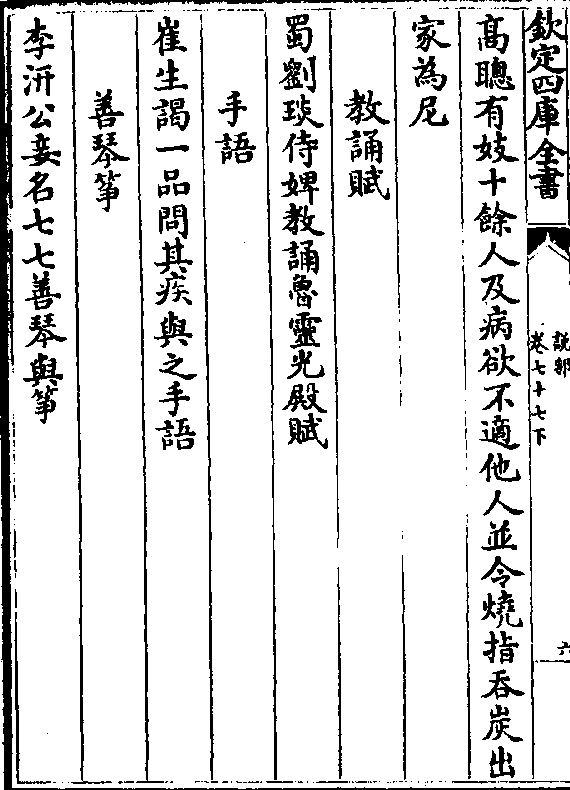 欽定四庫全書
說郛
卷七十七下
六
髙聰有妓十餘人及病欲不適他人並令燒指吞炭出
家為尼
教誦賦
蜀劉琰侍婢教誦魯靈光殿賦
手語
崔生謁一品問其疾與之手語
善琴筝
李汧公妾名七七善琴與筝